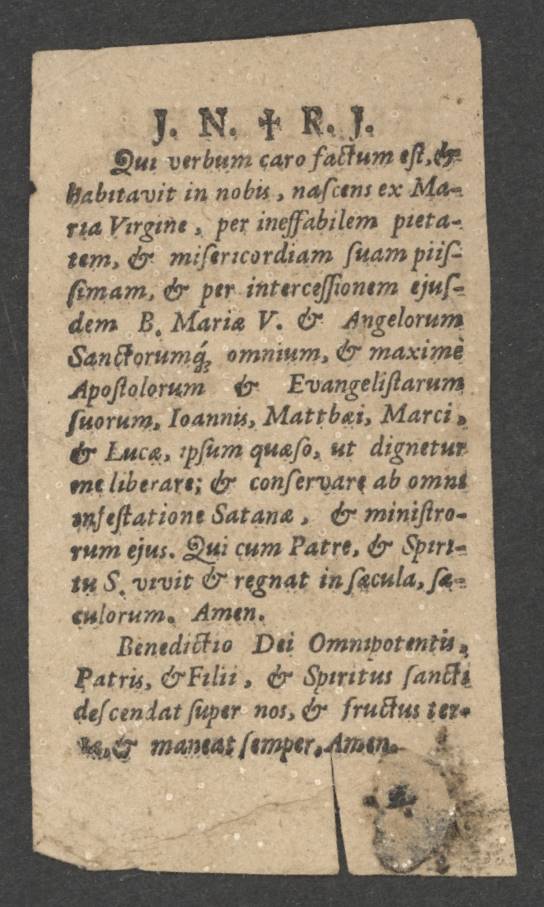 J. N. ✝ R. J.
Qui verbum caro factum est, &
habitavit in nobis, nascens ex Ma-
ria Virgine, per ineffabilem pieta-
tem, & misericordiam suam piis-
simam, & per intercessionem ejus-
dem B. Mariæ V. & Angelorum
Sanctorumq́ꝫ omnium, & maximè
Apostolorum & Evangelistarum
suorum, Ioannis, Matthæi, Marci,
& Lucæ, ipsum quæso, ut dignetur
me liberare; & conservare ab omni
infestatione Satanæ, & ministro-
rum ejus. Qui cum Patre, & Spiri-
tu S. vivit & regnat in sæcula, sæ-
culorum. Amen.
Benedictio Dei Omnipotentis,
Patris, & Filii, & Spiritus sancti
descendat super nos, & fructus ter-
& maneat semper, Amen.